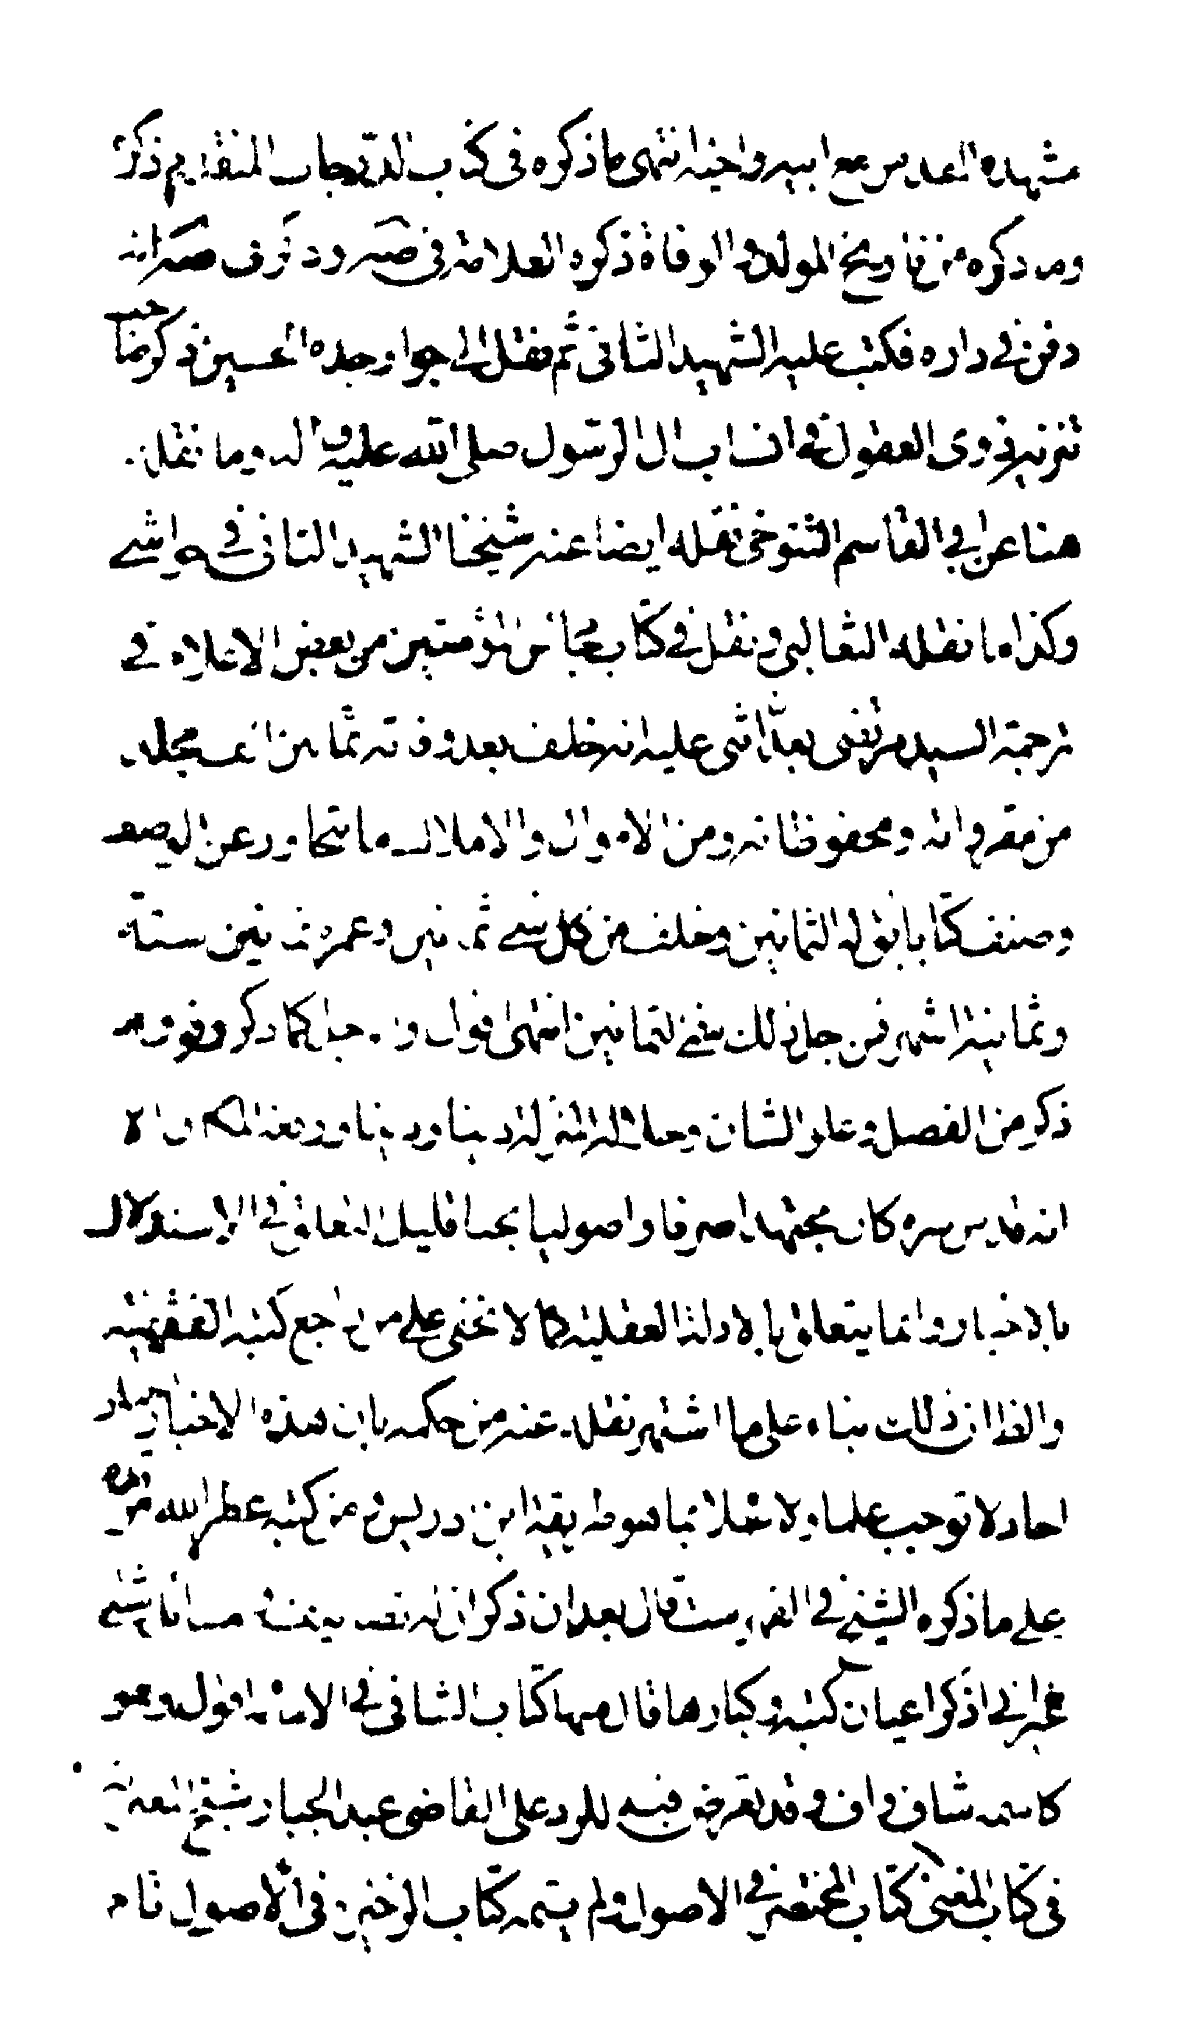 مشهده المقدس مع ابيه واخيه انتهى ما ذكره فى كتاب الدرجات المتقديم ذكره
وما ذكره من تاريخ المولد والوفاة ذكره العلامة فى صه وذكر فى صه انه
دفن في داره فكتب عليه الشهيد الثانى ثم نقل الى جوار جده الحسين ذكره صاحب
تنزيه ذوى العقول فى انساب ال الرسول صلى الله عليه واله وما نقل
هنا عن ابي القاسم التنوخى نقله ايضا عنه شيخنا الشهيد الثانى فى حواشى
وكذا ما نقله الثعالبى ونقل فى كتاب مجالس المؤمنين من بعض الاعلام فى
ترجمة السيد مرتضى بعد ان اثنى عليه انه خلف بعد وفاته ثمانين الف مجلد
من مقرواته ومحفوظاته ومن الاموال والاملاك ما يتجاوز عن الوصف
وصنف كتابا يقال له الثمانين وخلف من كل شى ثمانين وعمره ثمانين سنة
وثمانية اشهر فمن اجل ذلك سمى الثمانين انتهى اقول و جلى كما ذكروه وفوق ما
ذكر من الفضل وعلو الشان وجلالة المنزلة دينا ودنيا ورفعة المكان الا
انه قدس سره كان مجتهدا صرفا واصوليا بحتا قليل التعلق فى الاستدلال
بالاخبار وانما يتعلق بالادلة العقلية كما لا تخفى على من راجع كتبه الفقهية
والظ ان ذلك بناء على ما اشتهر نقله عنه من حكمه بان هذه الاخبار اخبار
احاد لا توجب علما ولا عملا كما هو طريقة ابن ادريس ومن كتبه عطر الله مرقده
على ما ذكره الشيخ فى الفهرست قال بعد ان ذكر ان له تصانيف ومسائل شتى
غير انى اذكر اعيان كتبه وكبارها قال منها كتاب الشافى فى الامامة اقول وهو
كاسمه شاف واف وقد تعرض فيه للرد على القاضى عبد الجبار شيخ المعتزلة
فى كتاب المغنى كتاب المختصر فى الاصول ولم يتمه كتاب الذخيرة فى الاصول تام